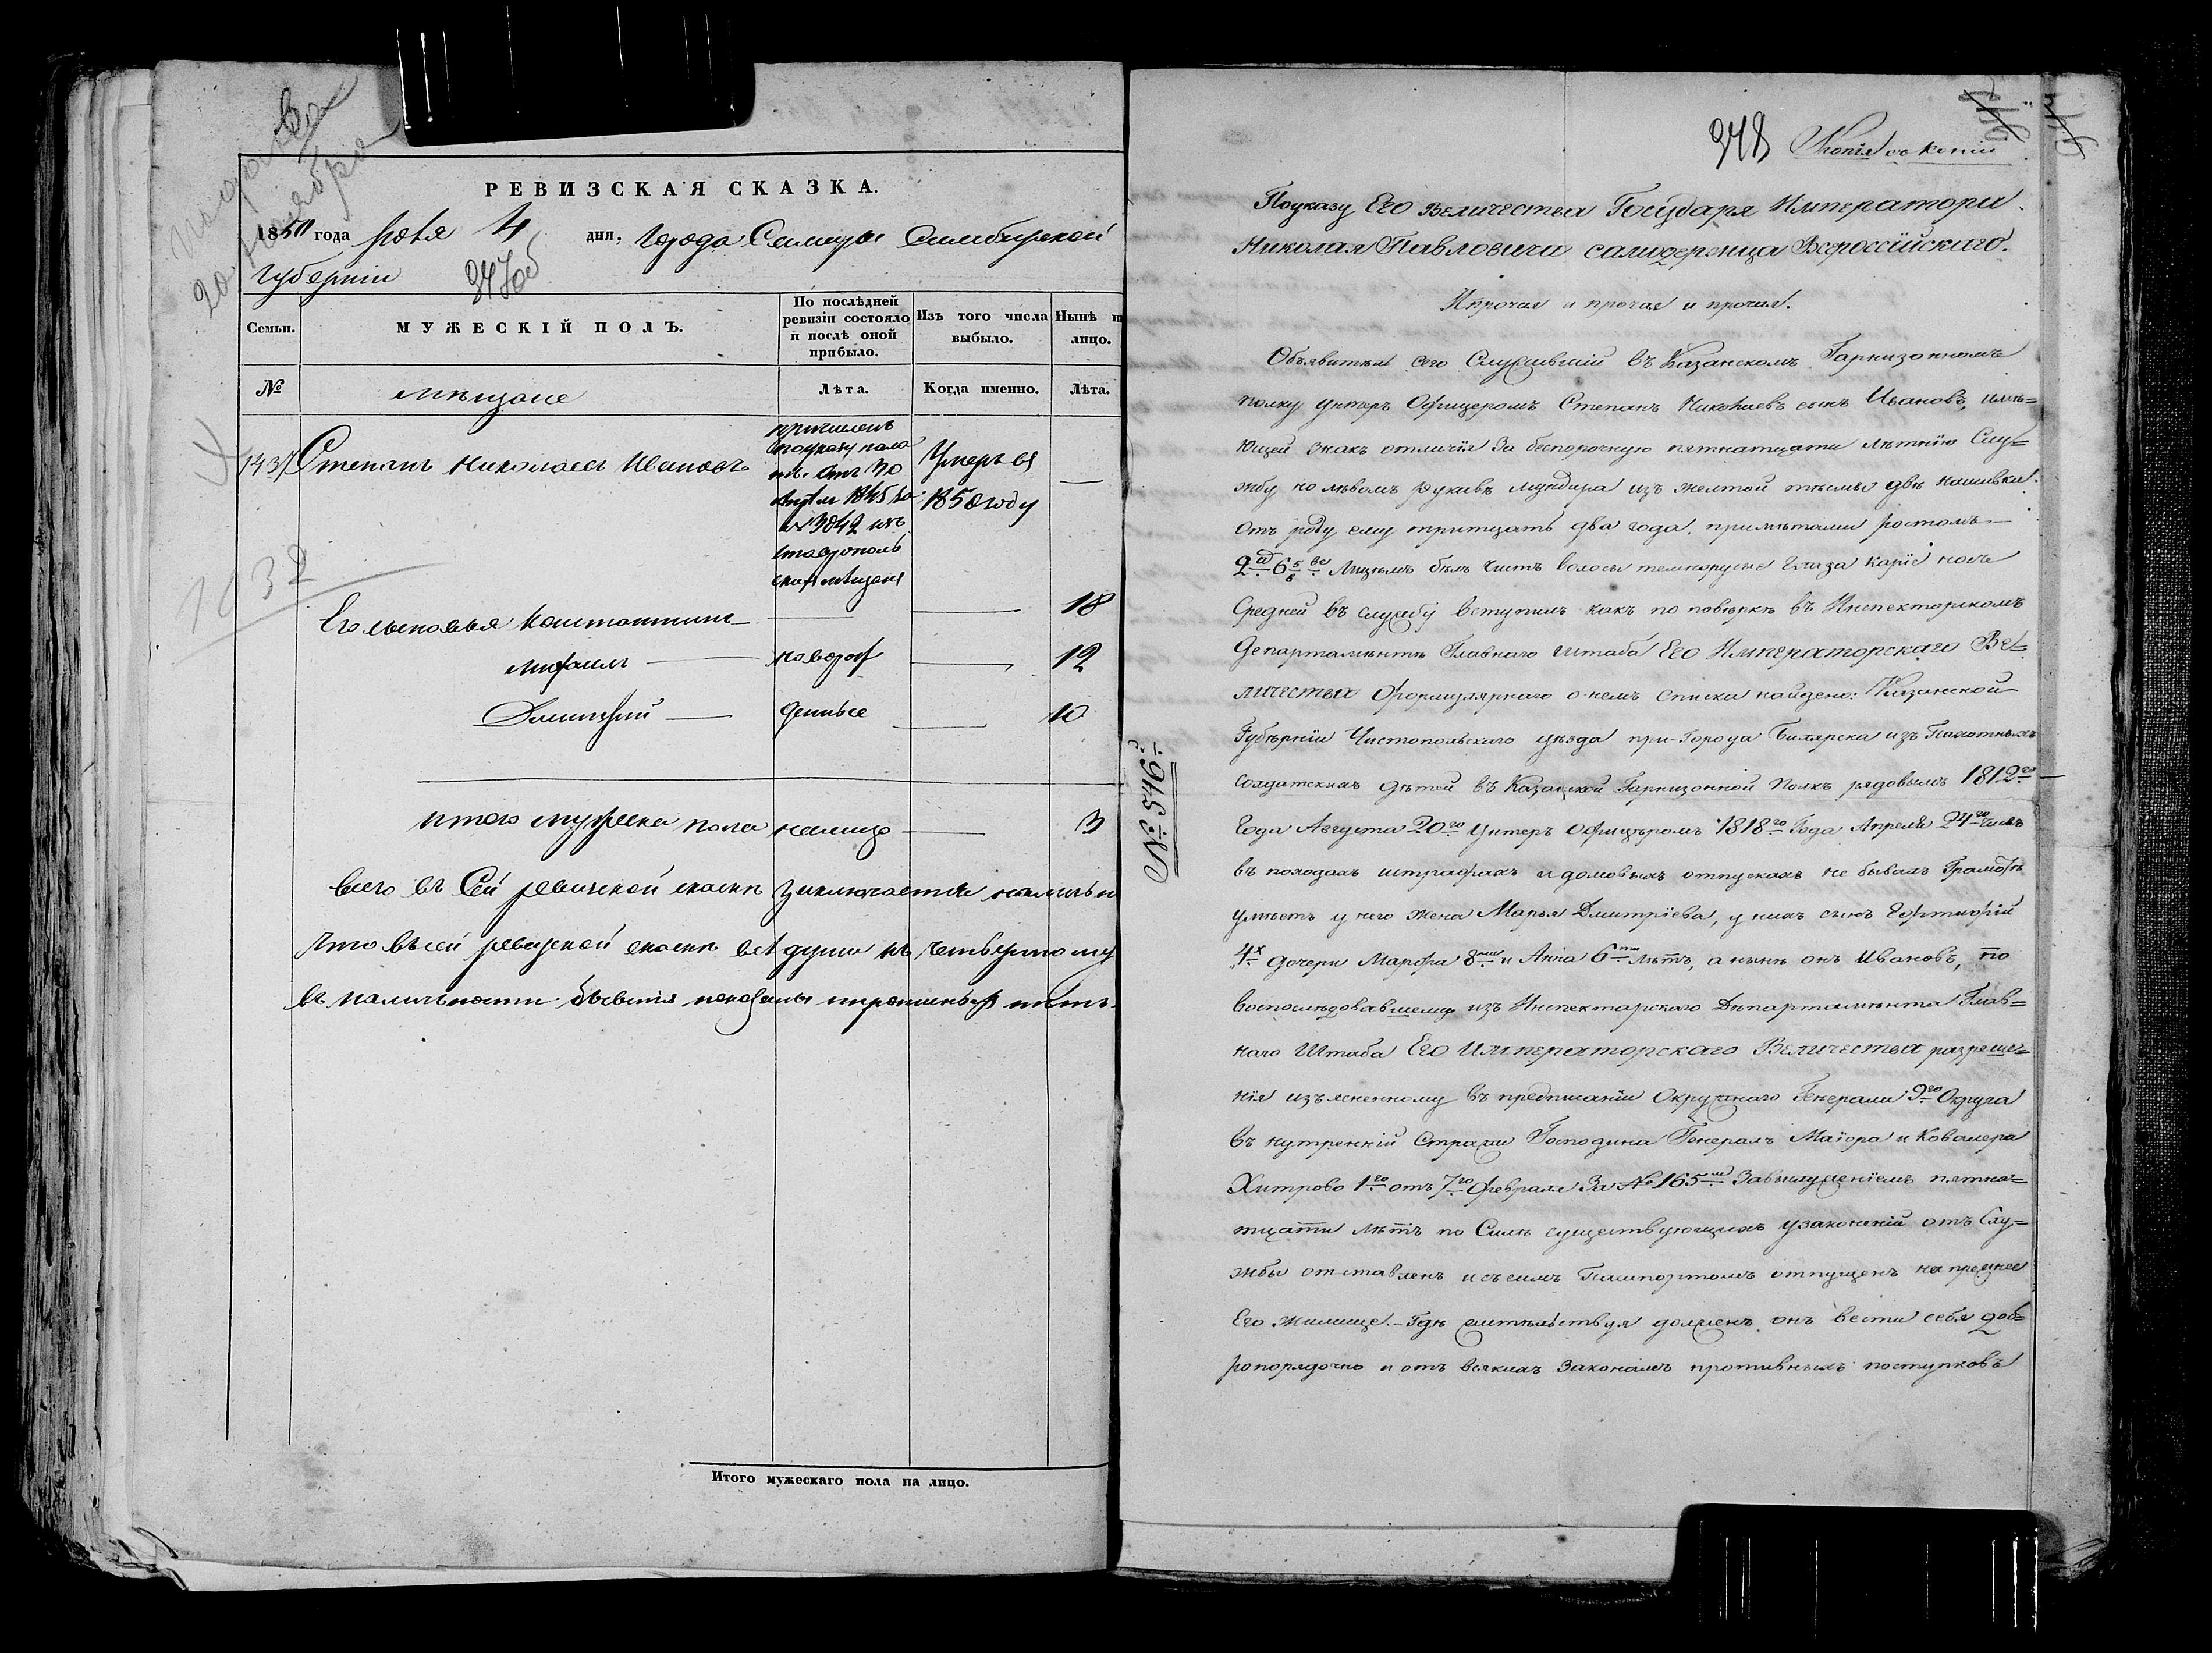 РЕВИЗСКАЯ СКАЗКА.
1850 года 4 дня, Города Самары Симбирской
Губернiи
347об
Семьи.
МУЖЕСКІЙ ПОЛЪ.
По послѣдней ревизіи состояло и послѣ оной прибыло.
Изъ того числа выбыло.
Нынѣ на лицо.
№
мѣщане
Лѣта.
Когда именно.
Лѣта.
1437 Степанъ Николаевъ Ивановъ
причисленъ
по указу пала
1845 за
№ 3842 изъ
ставрополь
Умеръ въ
1850 году
Его сыновья Констонтинъ 18
михаилъ новорож 12
Дмитрий 10
итого мужеска пола налицо 3
всего въ Сей ревизской скаскѣ заключается
Что въ сей ревизской скаскѣ всѣ души къ
въ наличности бывшiя показаны и прописныхъ нѣтъ.
Итого мужескаго пола на лицо.
№ 546
348 Копiя съ копiи
Поуказу Его Величества Государя Императора
Николая Павловича самодержца Всероссiйскаго.
Ипрочая и прочая и прочая.
Объявитель сего Служившiй въ Казанскомъ Гарнизонномъ
полку унтеръ Офицеромъ Степанъ Николаевъ сынъ Ивановъ, имѣ=
ющей знакъ отличiя За безпорочную пятнатцати лѣтнюю Слу=
жбу на лѣвомъ рукавѣ мундира изъ желтой тесьмы двѣ нашивки.
отъ роду ему тритцать два года. примѣтами ростомъ
2 6 5/8 Лицемъ бѣлъ Чистъ волосы темнорусые Глаза карiе носъ
Средней въ службу вступилъ какъ по повѣркѣ въ Инспекторскомъ
Департаментѣ Главнаго Штаба Его Императорскаго Ве=
личества Формулярнаго о немъ Списка найдено: Казанской
Губернiи Чистопольскаго уѣзда при-Города Билярска изъ Пахотныхъ
солдатскихъ дѣтей въ Казанской Гарнизонной Полкъ рядовымъ 1812го
Года Августа 20го Унтеръ Офицеромъ 1818го Года Апреля 24го
въ походахъ штрафахъ и домовыхъ отпускахъ не бывалъ Грамотѣ
умѣетъ у него жена Марья Дмитрiева, у нихъ сынъ
4х дочери Марфа 8ми и Анна 6ти лѣтъ, а нынѣ онъ Ивановъ, по
воспоследовавшему изъ Инспектарскаго Департамента Глав=
наго Штаба Его Императорскаго Величества разреше=
нiя изъясненному въ предписанiи Окружнаго Генерала 9го Округа
въ нутренней Стражи Господина Генералъ Маiора и Ковалера
Хитрово 1го отъ 7го Февраля За № 165мъ Завыслуженiемъ пятна=
тцати лѣтъ по Силѣ существующихъ узаконенiй отъ Слу=
жбы отставленъ и съ симъ Пашпортомъ отпущенъ на прежнее
Его Жилище.- Гдѣ жительствуя долженъ онъ вести себя доб=
ропорядочно и отъ всякихъ Законамъ противныхъ поступковъ